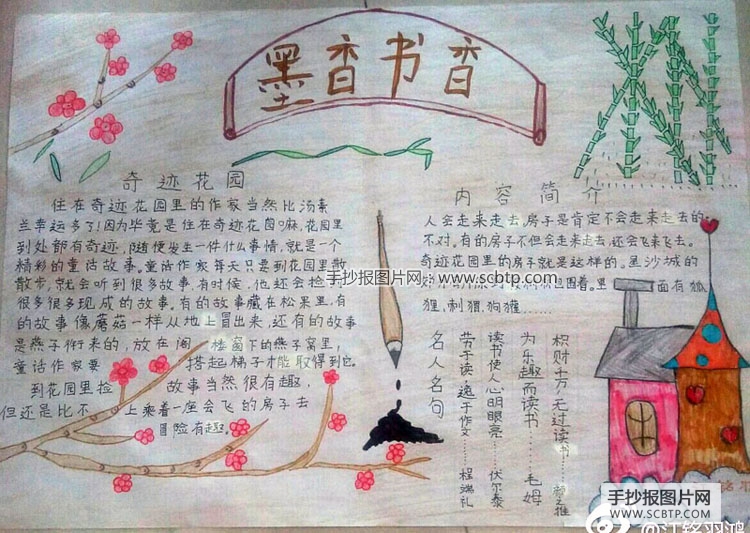 墨香书香
奇迹花园
住在奇迹花园里的作家当然比汤素
兰幸运多了!因为毕竟是住在奇迹花园嘛,花园里
到处都有奇迹,随便发生一件什么事情,就是一个
精彩的童话故事。童话作家每天只是到花园里散
散步,就会听到很多故事,有时候,他还会捡
很多很多现成的故事。有的故事藏在松果里,有
的故事像蘑菇一样从地上冒出来,还有的故事
是燕子衔来的,放在阁楼窗下的燕子窝里,
童话作家要搭起梯子才能取得到它。
到花园里捡故事当然很有趣,
但还是比不上乘着一座会飞的房子去
冒险有趣。
内容简介
人会走来走去,房子是肯定不会走来走去的
不对。有的房子不但会走来走去,还会飞来飞去。
奇迹花园里的房子就是这样的。黑沙城的
围着。里面有狐
狸,刺猬,狗獾……
名人名句
劳于读,逸于作文……程端礼
读书使人心明眼亮……伏尔泰
为乐趣而读书……毛姆
积财千万,无过读书……颜之推
手抄报图片网 www.scbtp.com
手抄报图片网
WWW.SCBTP.COM
@江铭羽鸿